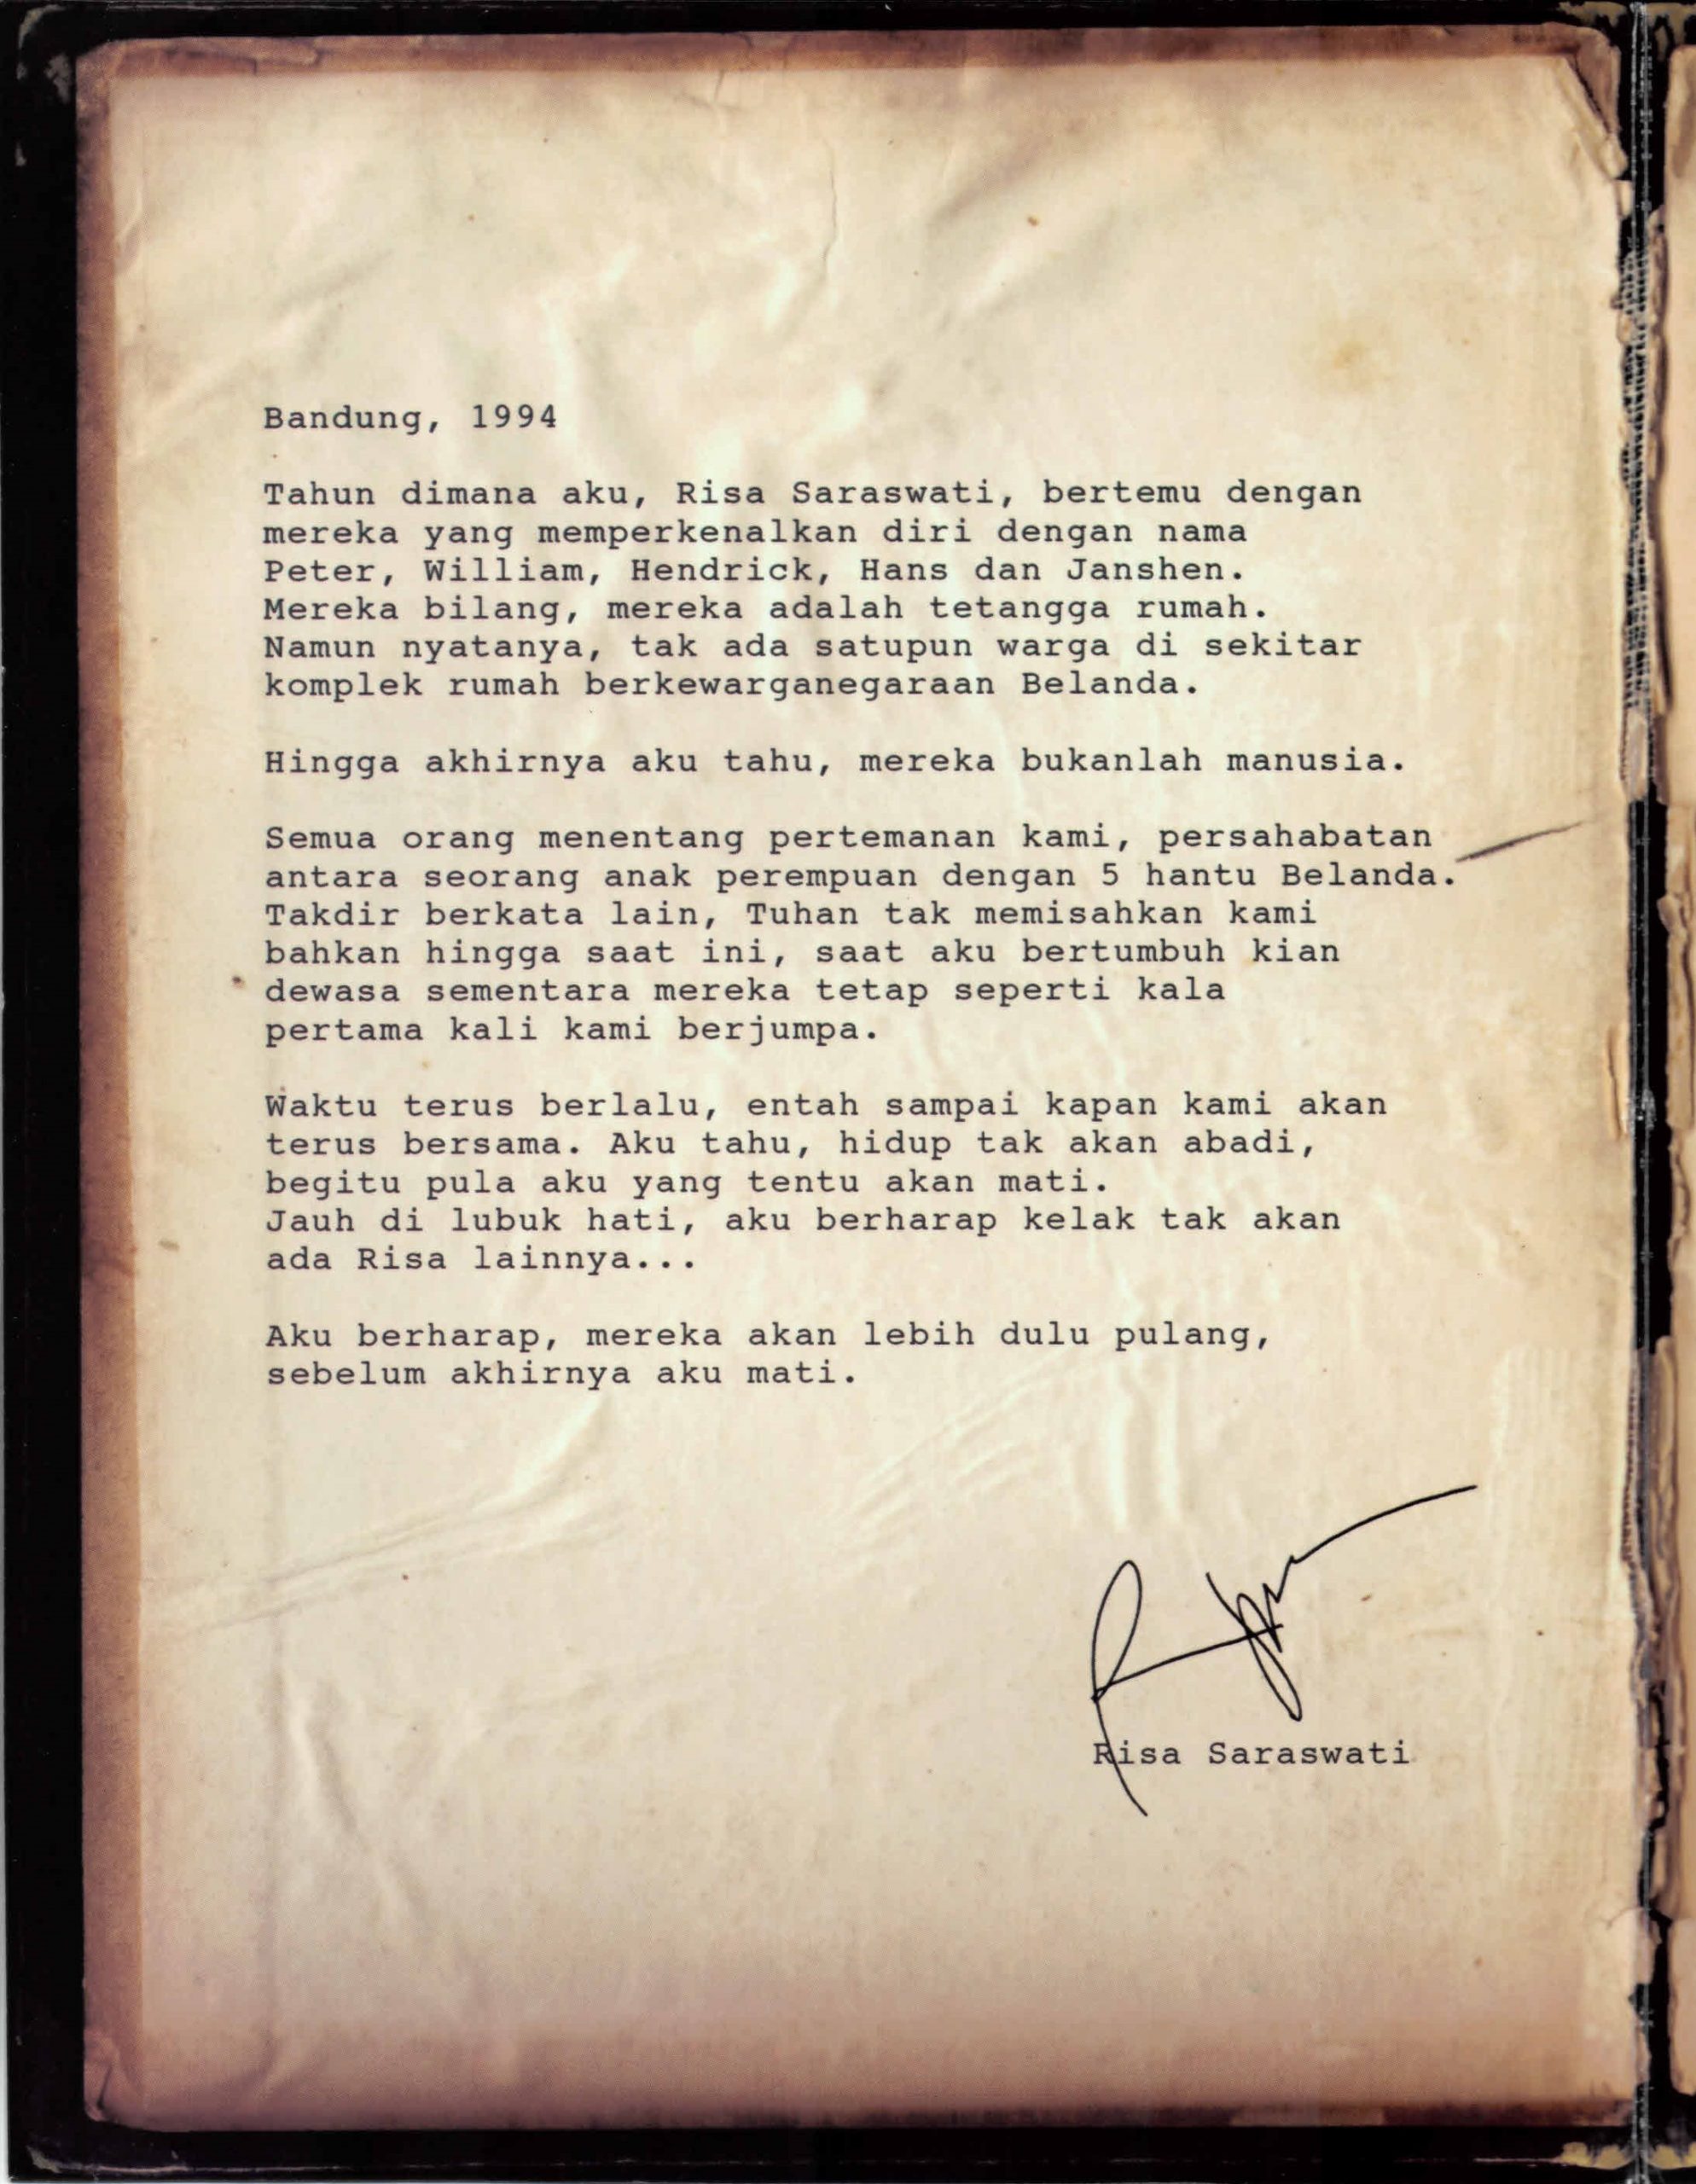 Bandung, 1994
Tahun dimana aku, Risa Saraswati, bertemu dengan
mereka yang memperkenalkan diri dengan nama
Peter, William, Hendrick, Hans dan Janshen.
Mereka bilang, mereka adalah tetangga rumah.
Namun nyatanya, tak ada satupun warga di sekitar
komplek rumah berkewarganegaraan Belanda.
Hingga akhirnya aku tahu, mereka bukanlah manusia.
Semua orang menentang pertemanan kami, persahabatan
antara seorang anak perempuan dengan 5 hantu Belanda.
Takdir berkata lain, Tuhan tak memisahkan kami
bahkan hingga saat ini, saat aku bertumbuh kian
dewasa sementara mereka tetap seperti kala
pertama kali kami berjumpa.
Waktu terus berlalu, entah sampai kapan kami akan
terus bersama. Aku tahu, hidup tak akan abadi,
begitu pula aku yang tentu akan mati.
Jauh di lubuk hati, aku berharap kelak tak akan
ada Risa lainnya...
Aku berharap, mereka akan lebih dulu pulang,
sebelum akhirnya aku mati.
Risa Saraswati